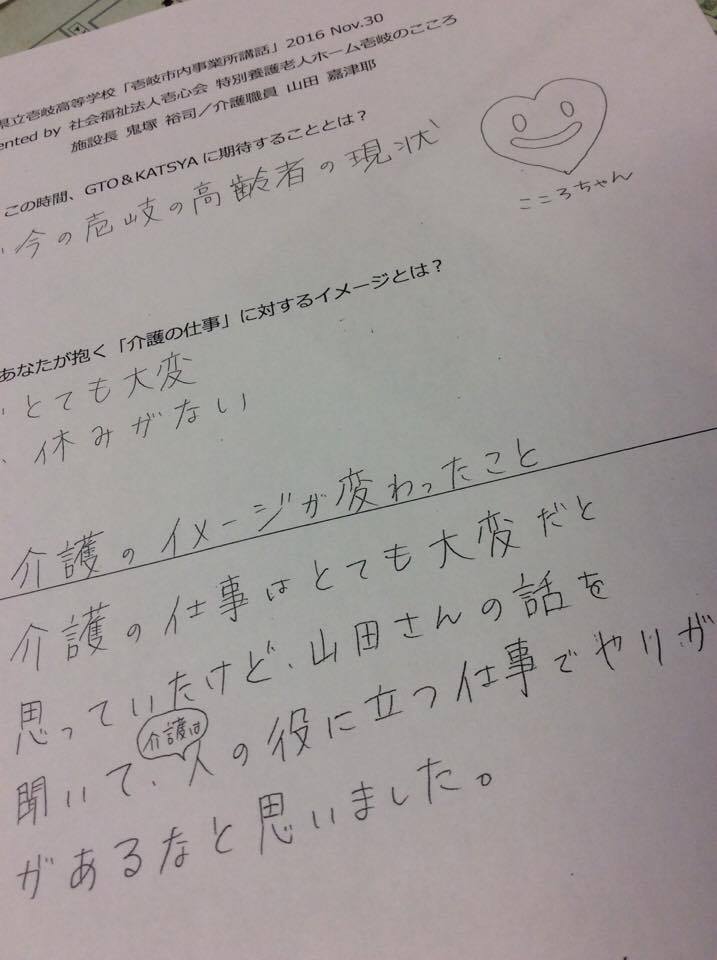 県立壱岐高等学校「壱岐市内事業所講話」2016 Nov.30
ented by 社会福祉法人壱心会 特別養護老人ホーム壱岐のこころ
施設長 鬼塚 裕司／介護職員 山田 嘉津耶
この時間、GTO＆KATSYAに期待することとは？
・今の壱岐の高齢者の現状
こころちゃん
あなたが抱く「介護の仕事」に対するイメージとは？
・とても大変
・休みがない
介護のイメージが変わったこと
介護の仕事はとても大変だと
思っていたけど、山田さんの話を
聞いて、介護は人の役に立つ仕事でやりが
があるなと思いました。